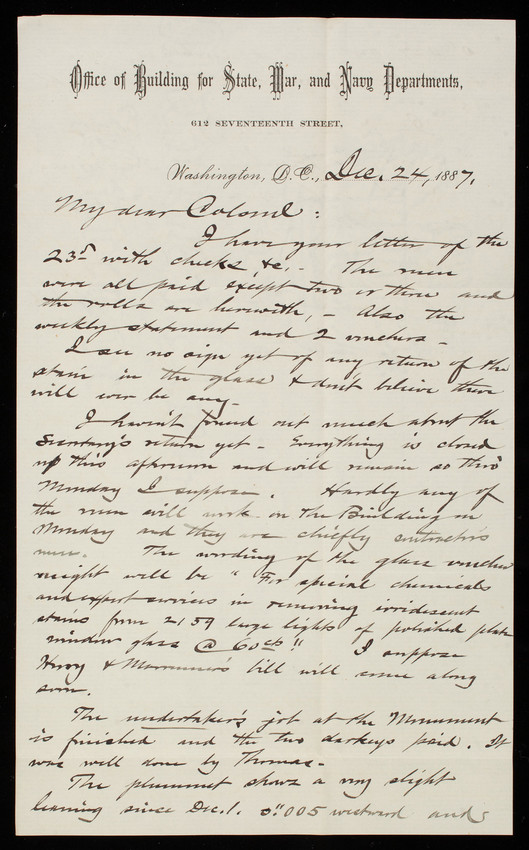 Office of Building for State, War, and Navy Departments,
612 SEVENTEENTH STREET,
Washington, D.C., Dec. 24, 1887.
My dear Colonel:
I have your letter of the
23d with checks, &c. - The men
were all paid except two or three and
the rolls are herewith, - Also the
weekly statement and 2 vouchers -
I see no sign yet of any return of the
stain in the glass & don't believe there
will ever be any -
I haven't found out much about the
Secretary's return yet - Everything is closed
up this afternoon and will remain so thro'
Monday I suppose. Hardly any of
the men will work on the Building on
Monday and they are chiefly contractor's
men. The wording of the glass voucher
might well be "For special chemicals
and expert services in removing irridescent
stains from 2159 large lights of polished plate
window glass @ 60cts" I suppose
&
bill will come along
soon.
The undertaker's job at the Monument
is finished and the two darkeys paid. It
was well done by Thomas -
The plummet shows a very slight
leaning since Dec. 1. 0".005 westward and